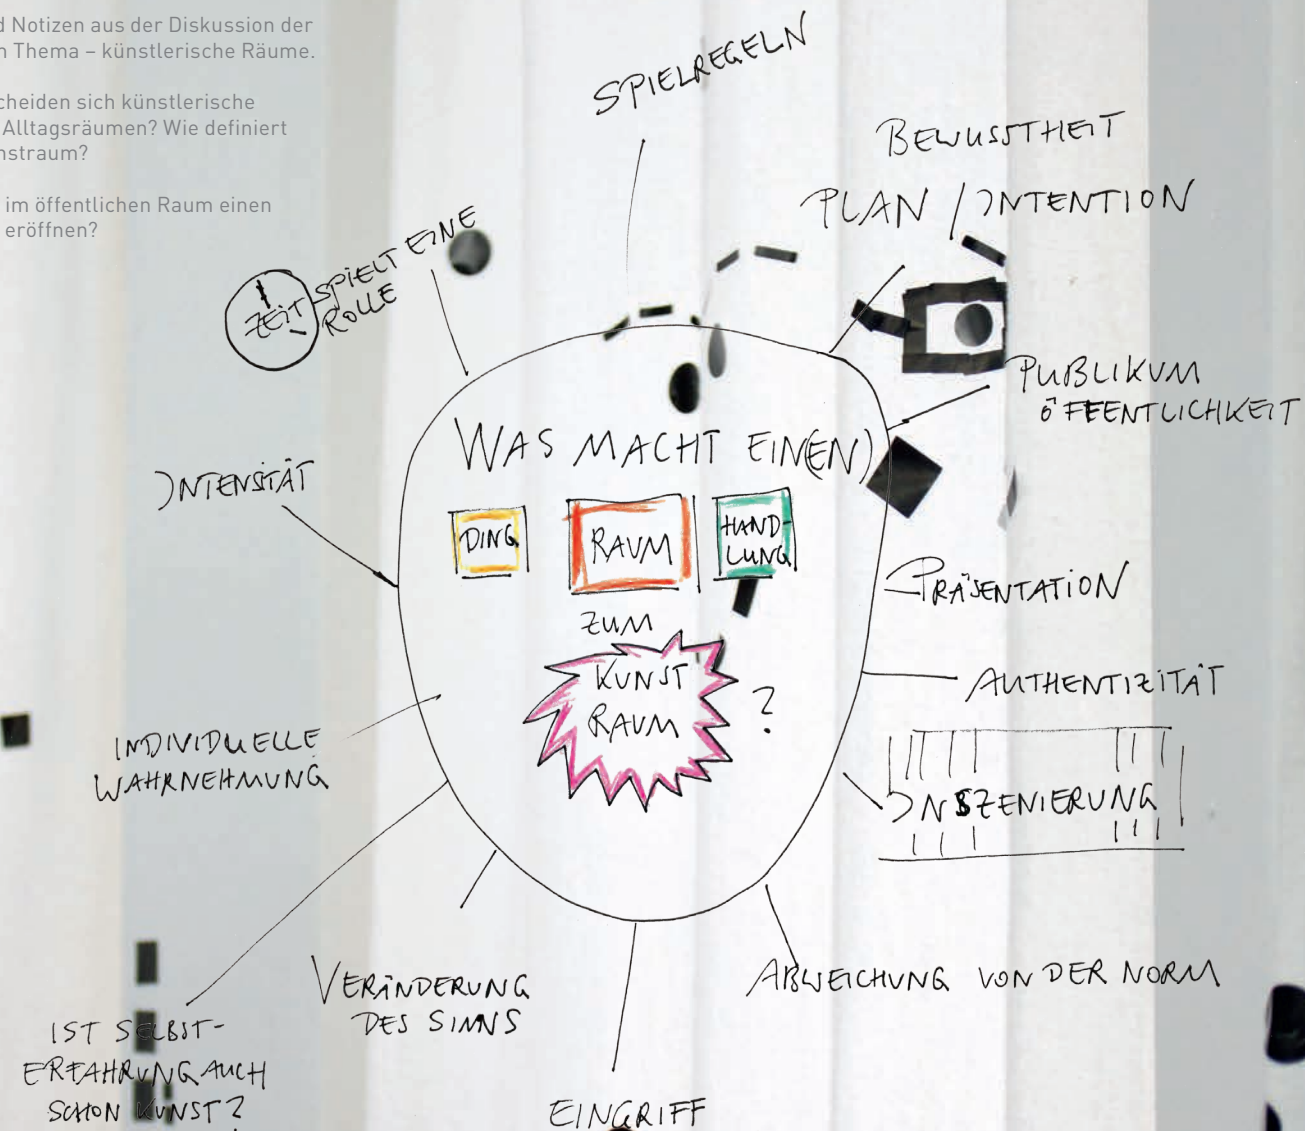 d Notizen aus der Diskussion der
n Thema – künstlerische Räume.
cheiden sich künstlerische
Alltagsräumen? Wie definiert
nstraum?
im öffentlichen Raum einen
eröffnen?
SPIELREGELN
BEWUSSTHEIT
PLAN / INTENTION
ZEIT SPIELT EINE
ROLLE
PUBLIKUM
ÖFFENTLICHKEIT
INTENSITÄT
WAS MACHT EIN(EN)
DING
RAUM
HAND-
LUNG
ZUM
KUNST
RAUM
?
PRÄSENTATION
AUTHENTIZITÄT
INSZENIERUNG
INDIVIDUELLE
WAHRNEHMUNG
VERÄNDERUNG
DES SINNS
ABWEICHUNG VON DER NORM
IST SELBST-
ERFAHRUNG AUCH
SCHON KUNST?
EINGRIFF